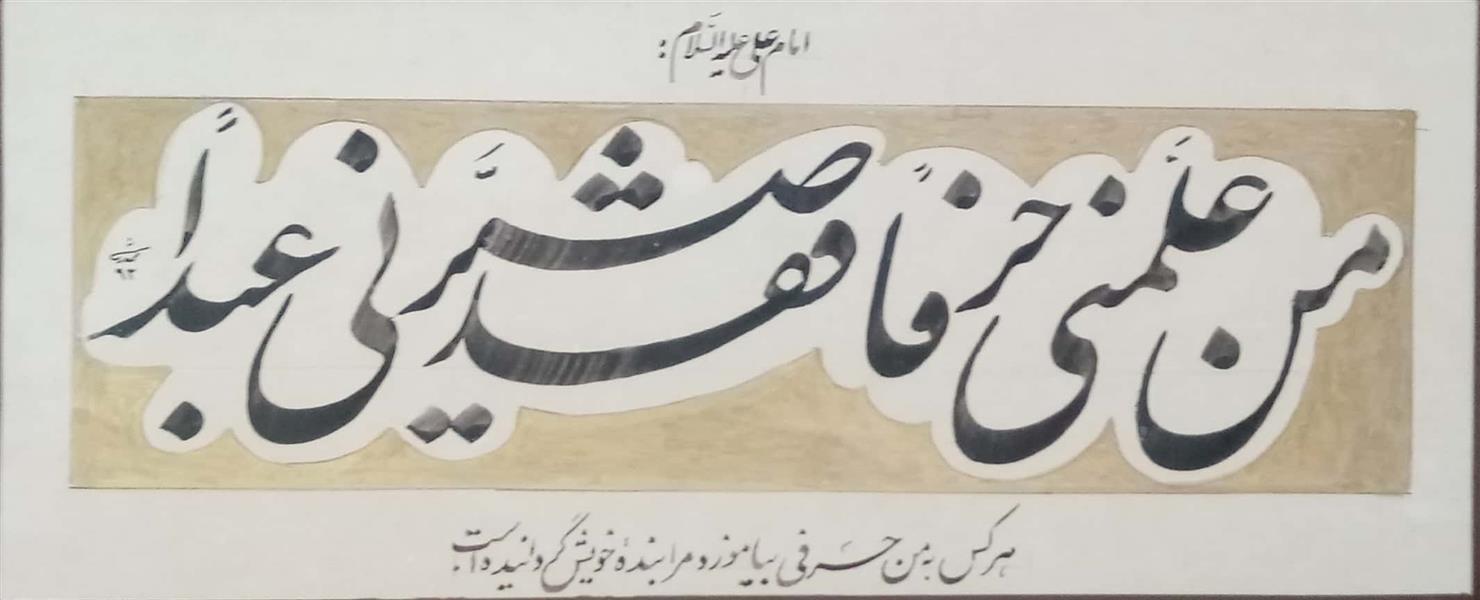 امام علی علیه السّلام :
من علّمنی حرفاً فقد صیّرنی عبداً
هر کس به من حرفی بیاموزد مرا بندهٔ خویش گردانیده است.
۹۲